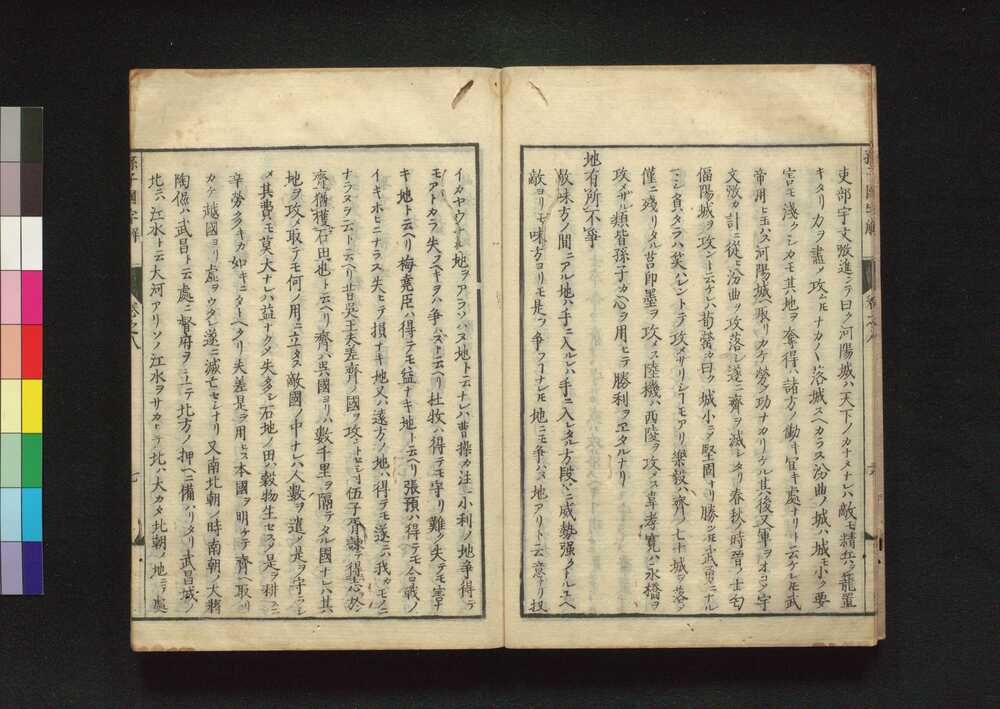 吏部宇文㢸進ミテ曰ク河陽城ハ天下ノカナメナレハ敵モ精兵ヲ籠置
キタリ力ヲ盡メ攻ムトモナカ〱落城スヘカラス汾曲ノ城ハ城モ小ク要
害モ淺クシカモ其地ヲ奪得ハ諸方ノ働キ宜キ處ナリト云ケレモ武
帝用ヒ玉ハス河陽城ヘ取リカケ勞ノ功ナカリケル其後又軍ヲオコシ宇
文㢸カ計ニ從ヒ汾曲ヲ攻落シ遂ニ齊ヲ滅シタリ春秋ノ時晉ノ士匄
偪陽城ヲ攻ント云ケレハ荀罃カ曰ク城小ニテ堅固ナリ勝ンモ武勇ニナル
マシ負タラハ笑ハレントテ攻メサリシヿモアリ樂毅ハ齊ノ七十城ヲ落シ
僅ニ殘リタル莒即墨ヲ攻メス陸機ハ西陵ヲ攻メス韋孝寛ハ永橋ヲ
攻メサル類皆孫子カ心ヲ用ヒテ勝利ヲヱタルナリ
地有所不爭
敵味方ノ間ニアル地ハ手ニ入ルレハ手ニ入レタル方段々ニ威勢強クナルユヘ
敵ヨリモ味方ヨリモ是ヲ爭フヿナレモ地ニモ爭ハヌ地アリト云意ナリ扨
イカヤウナル地ヲアラソハヌ地ト云ナレハ曹操カ注ニ小利ノ地爭得テ
モアトカラ失フヘキヲハ爭ハズト云ヘリ杜牧ハ得テモ守リ難ク失テモ害ナ
キ地ト云ヘリ梅堯臣ハ得テモ益ナキ地ト云ヘリ張預ハ得テモ合戰ノ
イキホヒニナラス失ヒテ損ナキ地又ハ遠方ノ地ハ得テモ遂ニハ我カモノニ
ナラヌヲ云ト云ヘリ昔吳王夫差齊ノ國ヲ攻ントセシニ伍子胥諫テ得志於
齊猶獲石田也ト云ヘリ齊ハ吳國ヨリハ數千里ヲ隔テタル國ナレハ其
地ヲ攻メ取テモ何ノ用ニ立タス敵國ノ中ナレハ人數ヲ遣メ是ヲ守ラシ
メ其費モ莫大ナレハ益ナクメ失多シ石地ノ田ハ穀物生セス是ヲ耕スニ
辛勞多キカ如キニタトヘタリ夫差是ヲ用ヒス本國ヲ明ケテ齊ヘ取リ
カケ越國ヨリ虛ヲウタレ遂ニ滅亡セシナリ又南北朝ノ時南朝ノ大將
陶侃ハ武昌ト云處ニ督府ヲ立テ北方ノ押ヘニ備ハリタリ武昌城ノ
北ニハ江水ト云大河アリソノ江水ヲサカヒテ北ハ大カタ北朝ノ地ニテ處
孫子國字解
卷之八
七